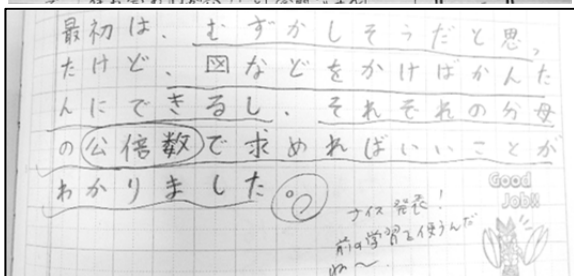 最初は、むずかしそうだと思っ
たけど、図などをかけばかんた
んにできるし、それぞれの分母
の公倍数で求めればいいことが
わかりました
ナイス発見!
前の学習を使うんだ
ね〜
Good
Job!!